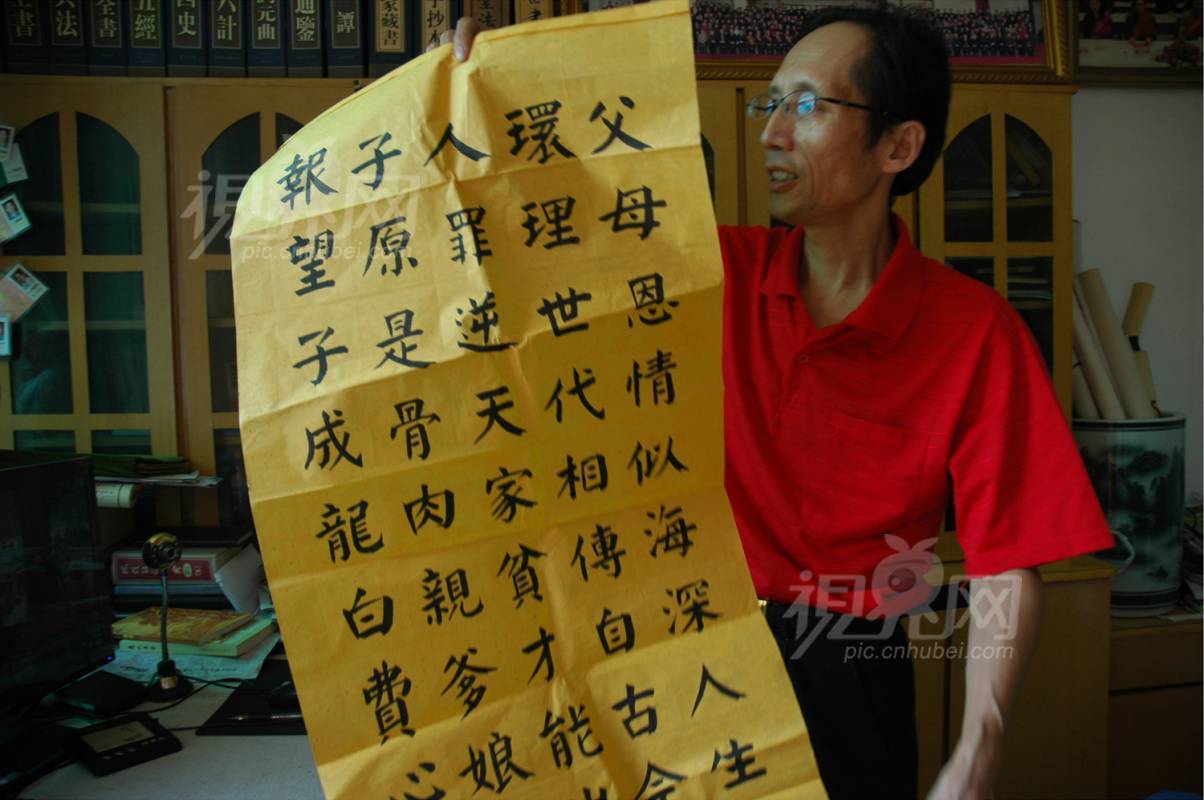 父母恩情似海深人生
環理世代相傳自古
人罪逆天家貧才能
子原是骨肉親爹娘
報望子成龍白費心
全書
五經
四史
六計
元曲
通鑑
譚
家藏
手抄
視界网
pic.cnhubei.com
視界网
pic.cnhubei.com